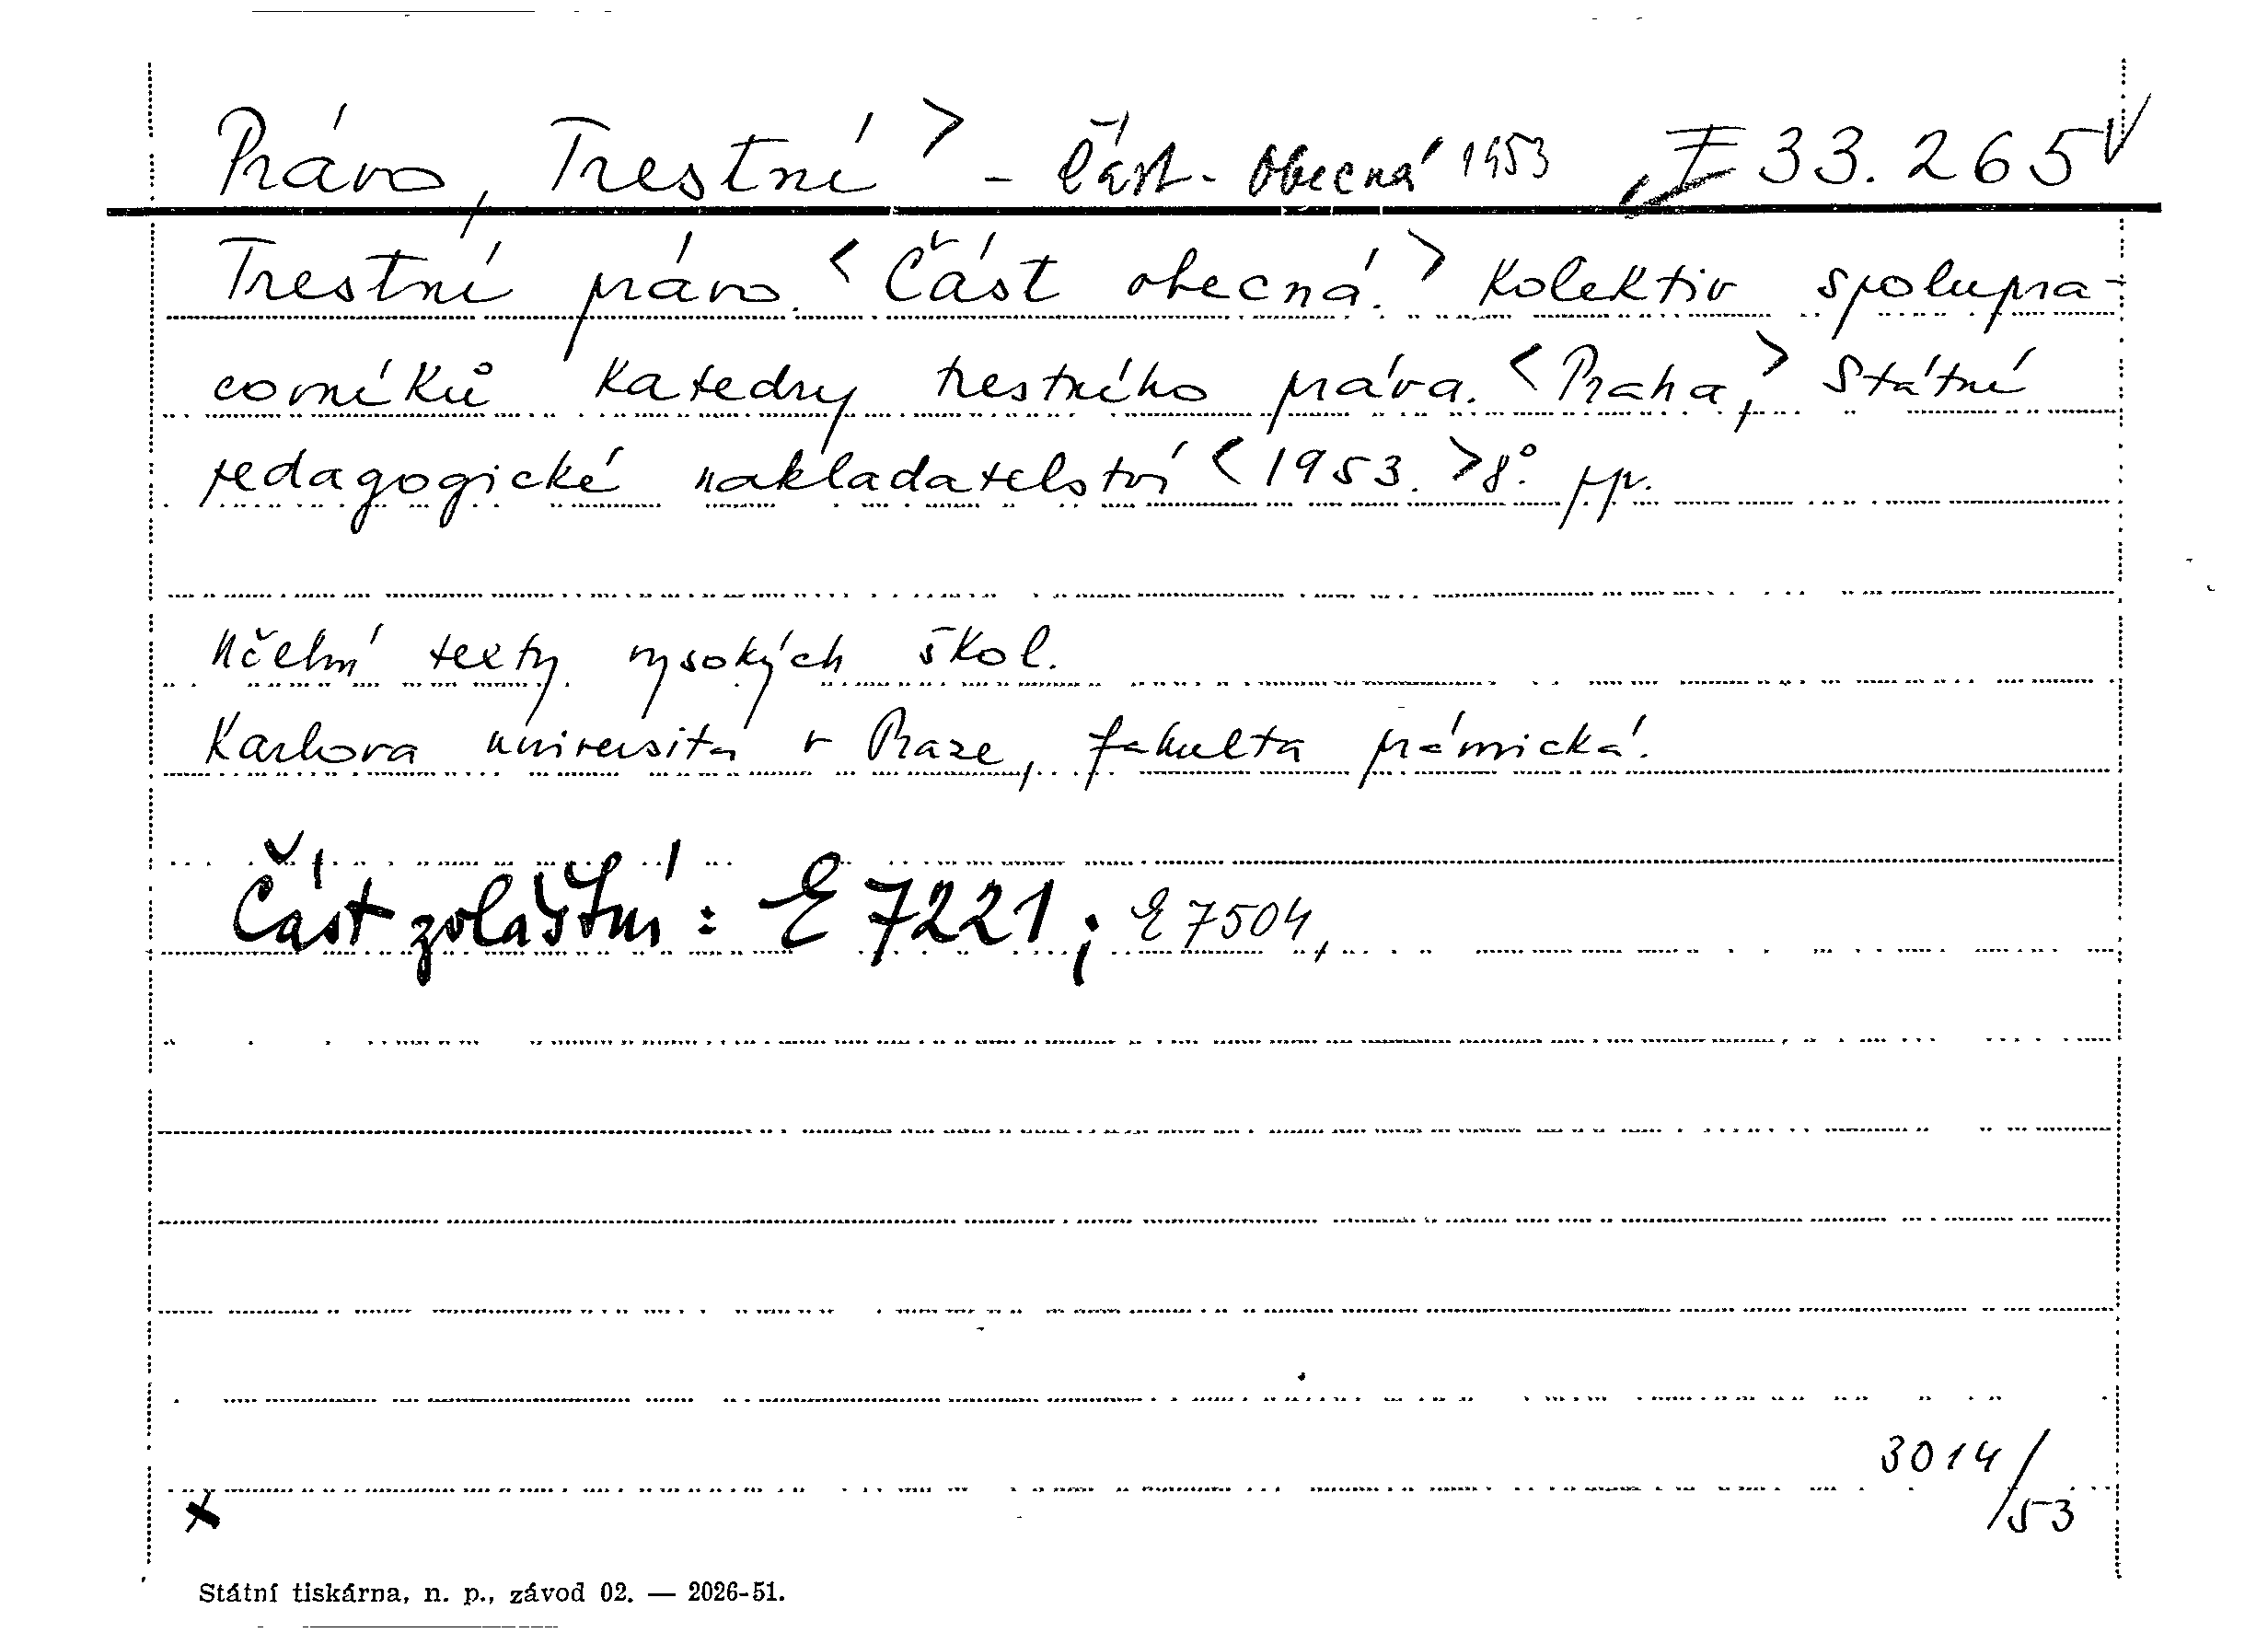 Právo, Trestní > - část - obecná 1953 E 33.265
Trestní právo. < Část obecná. > Kolektiv spolupra-
covníků katedry trestního práva. < Praha, > Státní
pedagogické nakladatelství < 1953. > 8°. pp.
Učební texty vysokých škol.
Karlova universita v Praze, fakulta právnická.
Část zvláštní: E 7221; E 7504,
3014/
53
Státní tiskárna, n. p., závod 02. — 2026-51.